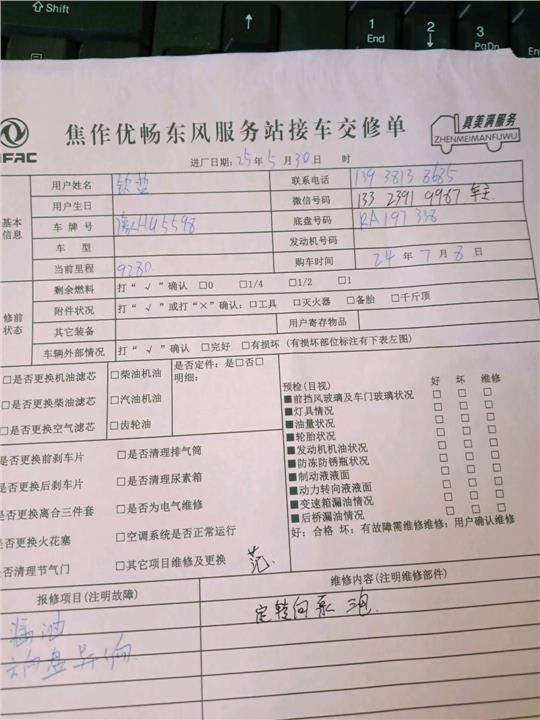 Shift
1
End
2
3
PgDn
焦作优畅东风服务站接车交修单
真美满服务
ZHENMEIMANFUWU
进厂日期:25年5月30日 时
基本信息
用户姓名
联系电话
用户生日
微信号码 133 2391 9987 车主
车牌号
底盘号码 RA197338
车 型
发动机号码
当前里程 9280
购车时间 24年7月8日
修前状态
剩余燃料 打“√”确认 □0 □1/4 □1/2 □1
附件状况 打“√”或打“×”确认:□工具 □灭火器 □备胎 □千斤顶
其它装备
用户寄存物品
车辆外部情况 打“√”确认 □完好 □有损坏(有损坏部位标注有下表左图)
□是否更换机油滤芯 □柴油机油
□是否更换柴油滤芯 □汽油机油
□是否更换空气滤芯 □齿轮油
是否定件:是□否□
明细:
预检(目视) 好 坏 维修
■前挡风玻璃及车门玻璃状况 □ □ □
■灯具情况 □ □ □
■油量状况 □ □ □
■轮胎状况 □ □ □
■发动机机油状况 □ □ □
■防冻防锈瓶状况 □ □ □
■制动液液面 □ □ □
■动力转向液液面 □ □ □
■变速箱漏油情况 □ □ □
■后桥漏油情况 □ □ □
好:合格 坏:有故障需维修维修:用户确认维修
是否更换前刹车片 □是否清理排气筒
是否更换后刹车片 □是否清理尿素箱
是否更换离合三件套 □是否为电气维修
是否更换火花塞 □空调系统是否正常运行
是否清理节气门 □其它项目维修及更换
范
报修项目(注明故障)
维修内容(注明维修部件)
漏油
方向盘异响
定转向泵